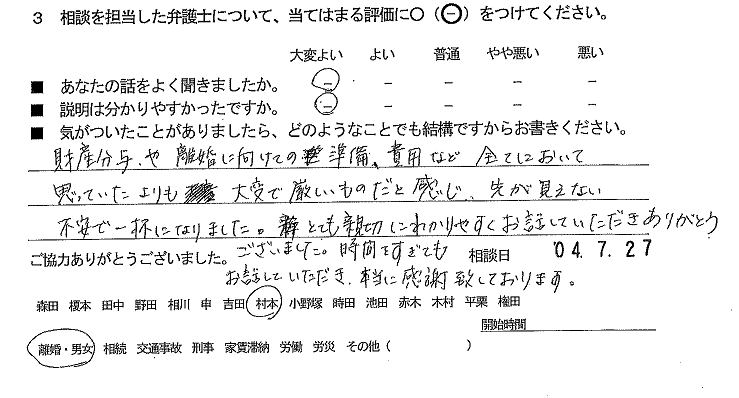 3 相談を担当した弁護士について、当てはまる評価に○(⊖)をつけてください。
大変よい よい 普通 やや悪い 悪い
■ あなたの話をよく聞きましたか。 － － － － －
■ 説明は分かりやすかったですか。 － － － － －
■ 気がついたことがありましたら、どのようなことでも結構ですからお書きください。
財産分与や離婚に向けての準備、費用など全てにおいて
思っていたよりも大変で厳しいものだと感じ、先が見えない
不安で一杯になりました。とても親切にわかりやすくお話していただきありがとう
ございました。時間をすぎても
ご協力ありがとうございました。 相談日 '04.7.27
お話していただき、本当に感謝致しております。
森田 榎本 田中 野田 相川 申 吉田 村本 小野塚 時田 池田 赤木 木村 平栗 権田
開始時間
離婚・男女 相続 交通事故 刑事 家賃滞納 労働 労災 その他( )